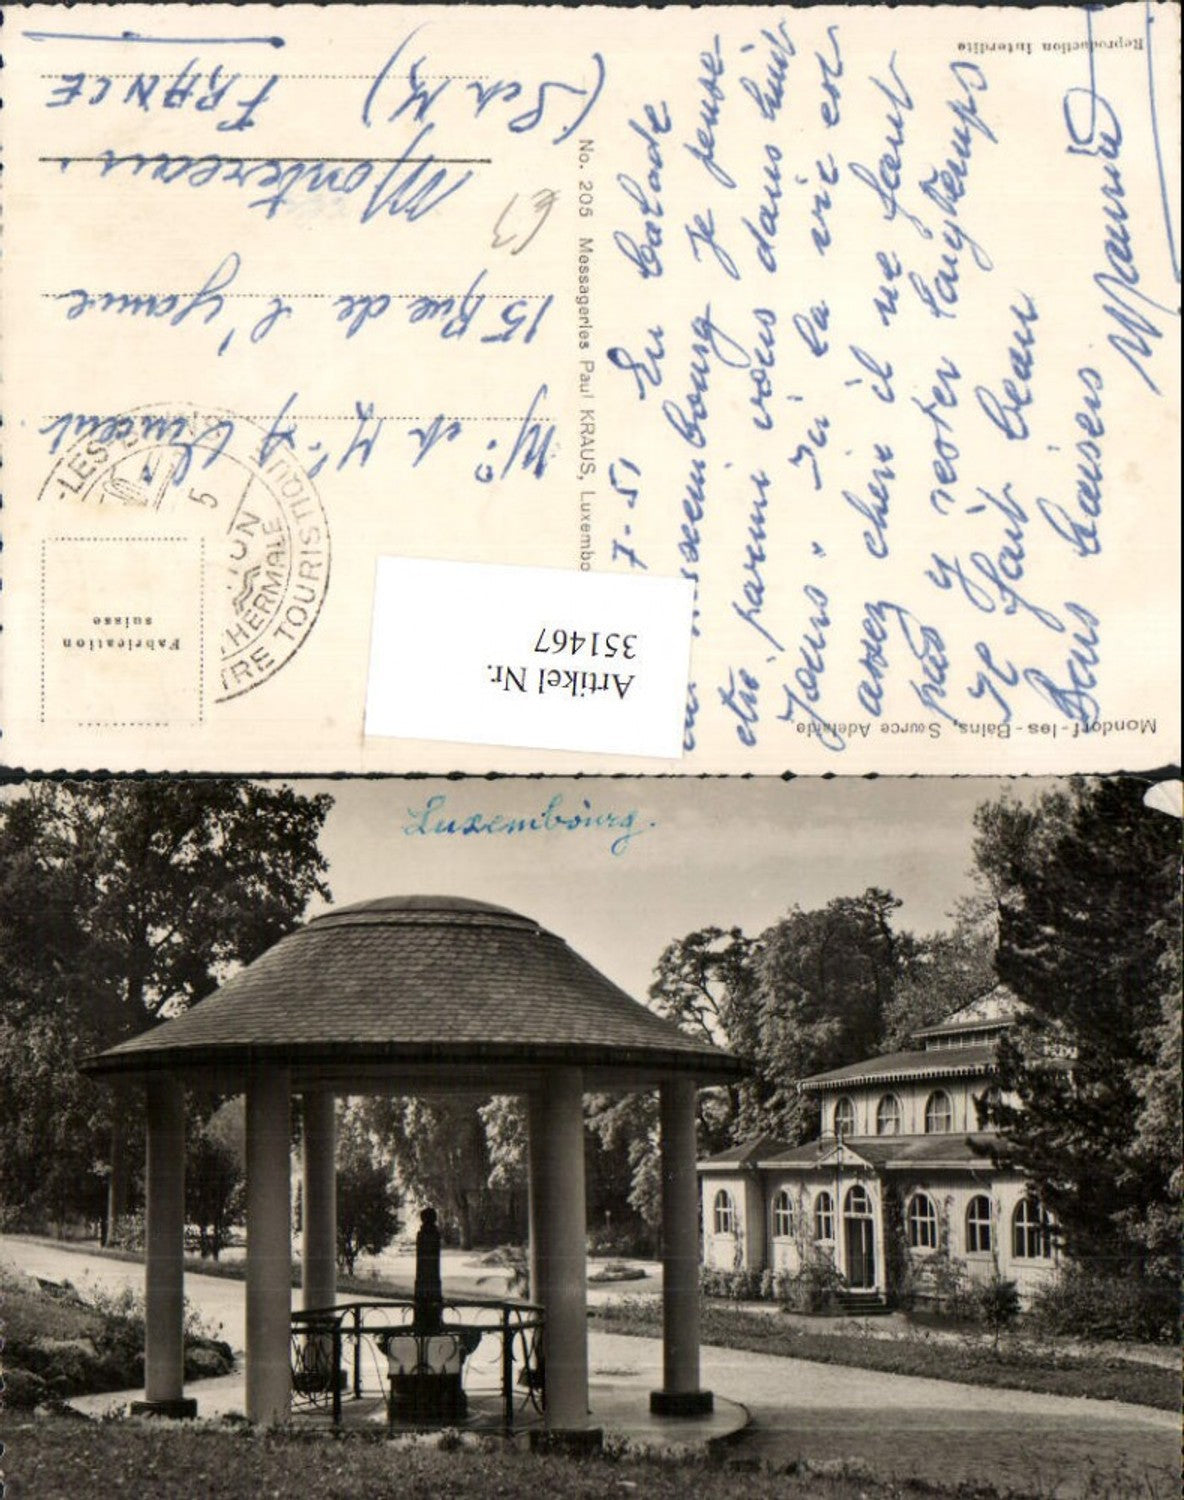 Reproduction interdite
Mondorf-les-Bains, Source Adelaide.
7-51 En balade
Luxembourg Je pense
parmi vous dans huit
Jours. Ici la vie est
assez chère il ne faut
pas y rester longtemps
Il fait beau
Bons baisers
Maurice
No. 205 Messageries Paul KRAUS, Luxembo
Fabrication
suisse
LES-BAINS
5
THERMALE
TRE TOURISTIQUE
Vincent
15 Rue de l'Yonne
Montereau.
(S et M)
FRANCE
Artikel Nr.
351467
Luxembourg.